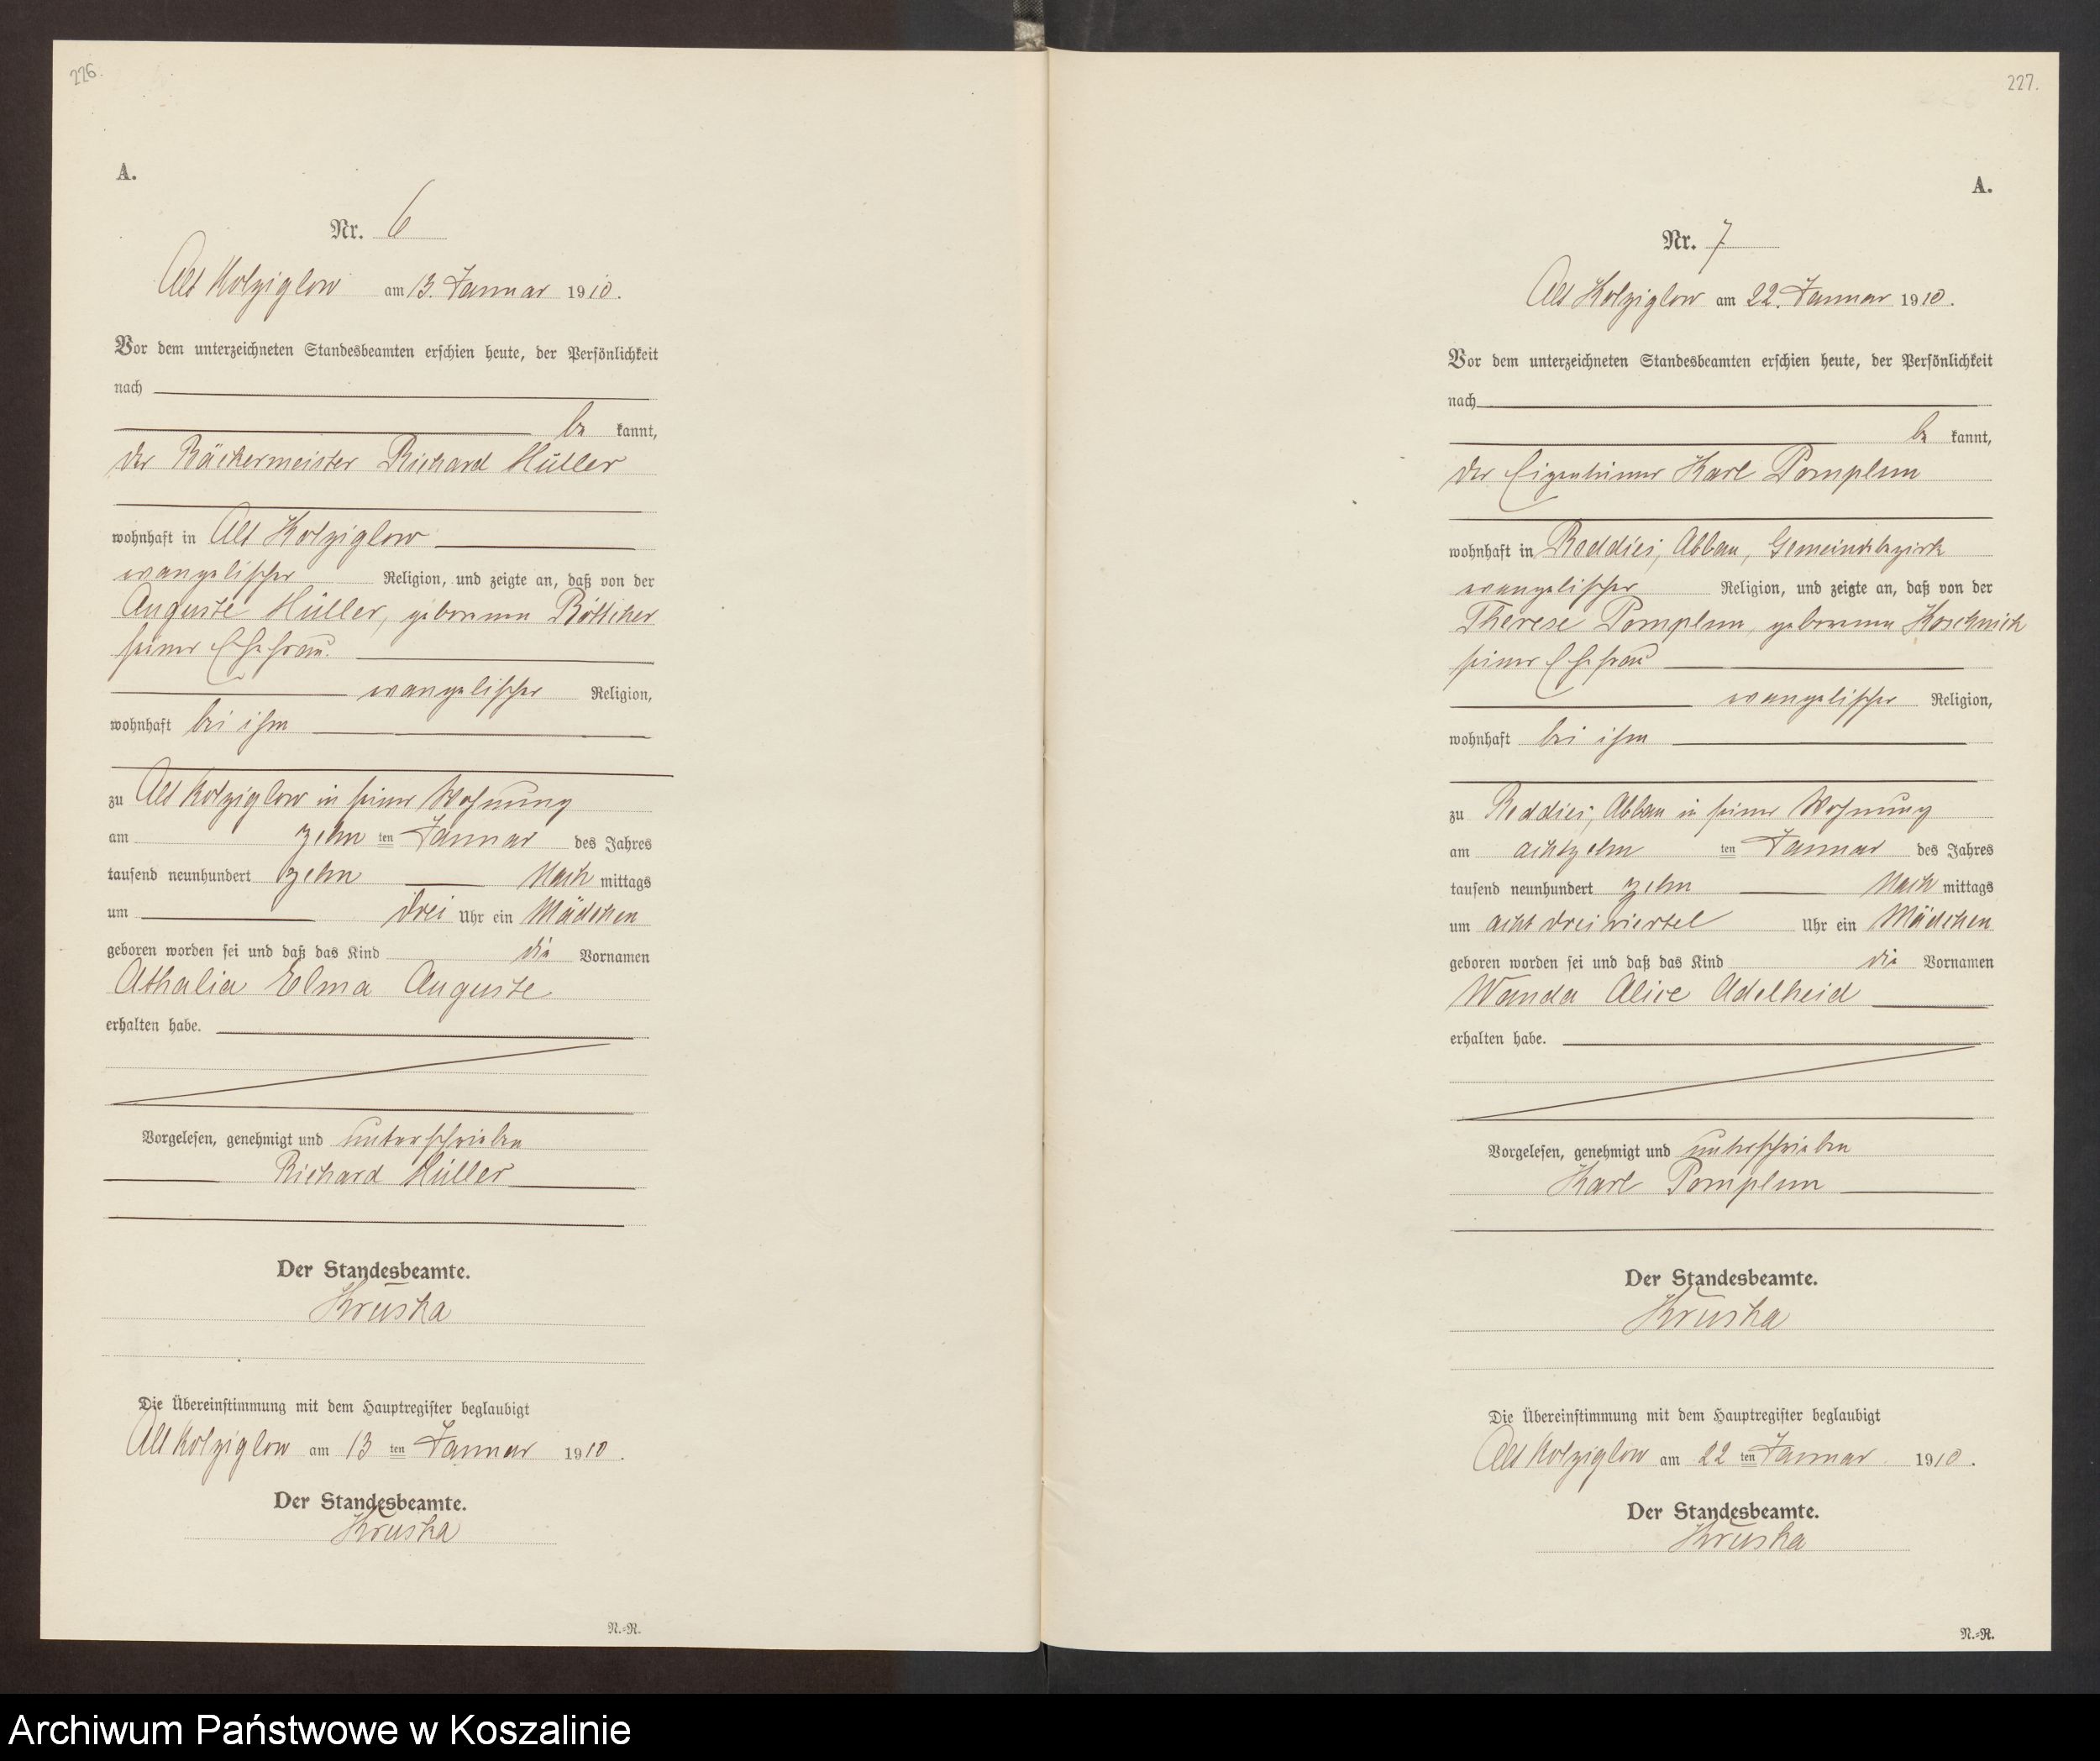 226.
A.
Nr. 6
Alt Kolziglow am 13. Januar 1910.
Vor dem unterzeichneten Standesbeamten erschien heute, der Persönlichkeit
nach
be kannt,
der Bäckermeister Richard Müller
wohnhaft in Alt Kolziglow
evangelischer Religion, und zeigte an, daß von der
Auguste Müller, geborenen Böttcher
seiner Ehefrau.
evangelischer Religion,
wohnhaft bei ihm
zu Alt Kolziglow in seiner Wohnung
am zehn ten Januar des Jahres
tausend neunhundert zehn Nach mittags
um drei Uhr ein Mädchen
geboren worden sei und daß das Kind die Vornamen
Athalia Elma Auguste
erhalten habe.
Vorgelesen, genehmigt und unterschrieben
Richard Müller
Der Standesbeamte.
Kruska
Die Übereinstimmung mit dem Hauptregister beglaubigt
Alt Kolziglow am 13 ten Januar 1910.
Der Standesbeamte.
Kruska
N.=R.
227.
A.
Nr. 7
Alt Kolziglow am 22. Januar 1910.
Vor dem unterzeichneten Standesbeamten erschien heute, der Persönlichkeit
nach
be kannt,
der Eigentümer Karl Pomplun
wohnhaft in Reddies, Abbau, Gemeindebezirk
evangelischer Religion, und zeigte an, daß von der
Therese Pomplun, geborenen Koschnick
seiner Ehefrau
evangelischer Religion,
wohnhaft bei ihm
zu Reddies, Abbau in seiner Wohnung
am achtzehn ten Januar des Jahres
tausend neunhundert zehn Nach mittags
um acht dreiviertel Uhr ein Mädchen
geboren worden sei und daß das Kind die Vornamen
Wanda Alice Adelheid
erhalten habe.
Vorgelesen, genehmigt und unterschrieben
Karl Pomplun
Der Standesbeamte.
Kruska
Die Übereinstimmung mit dem Hauptregister beglaubigt
Alt Kolziglow am 22 ten Januar 1910.
Der Standesbeamte.
Kruska
N.=R.
Archiwum Państwowe w Koszalinie